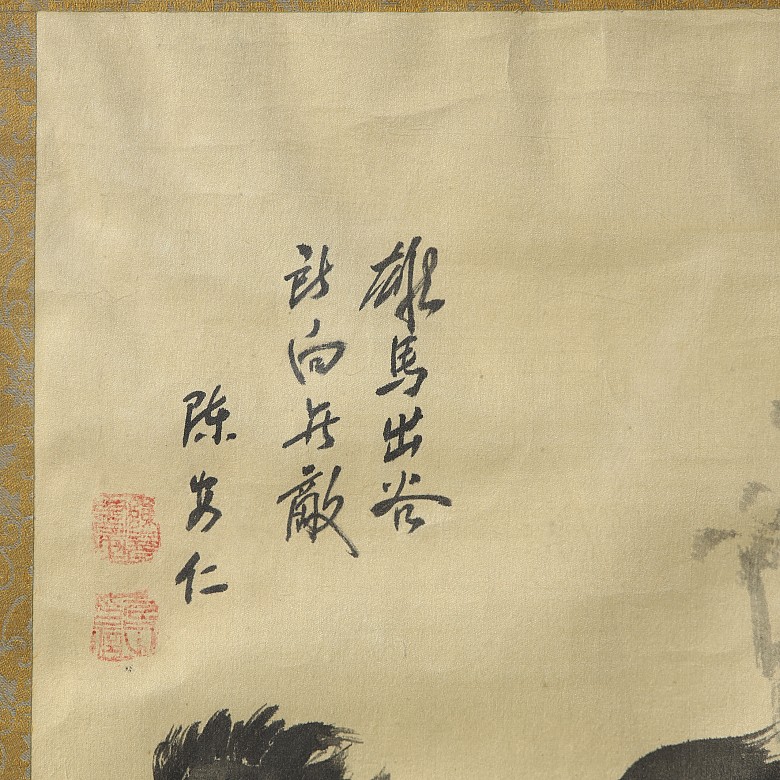 雄馬出谷
所向無敵
陈安仁